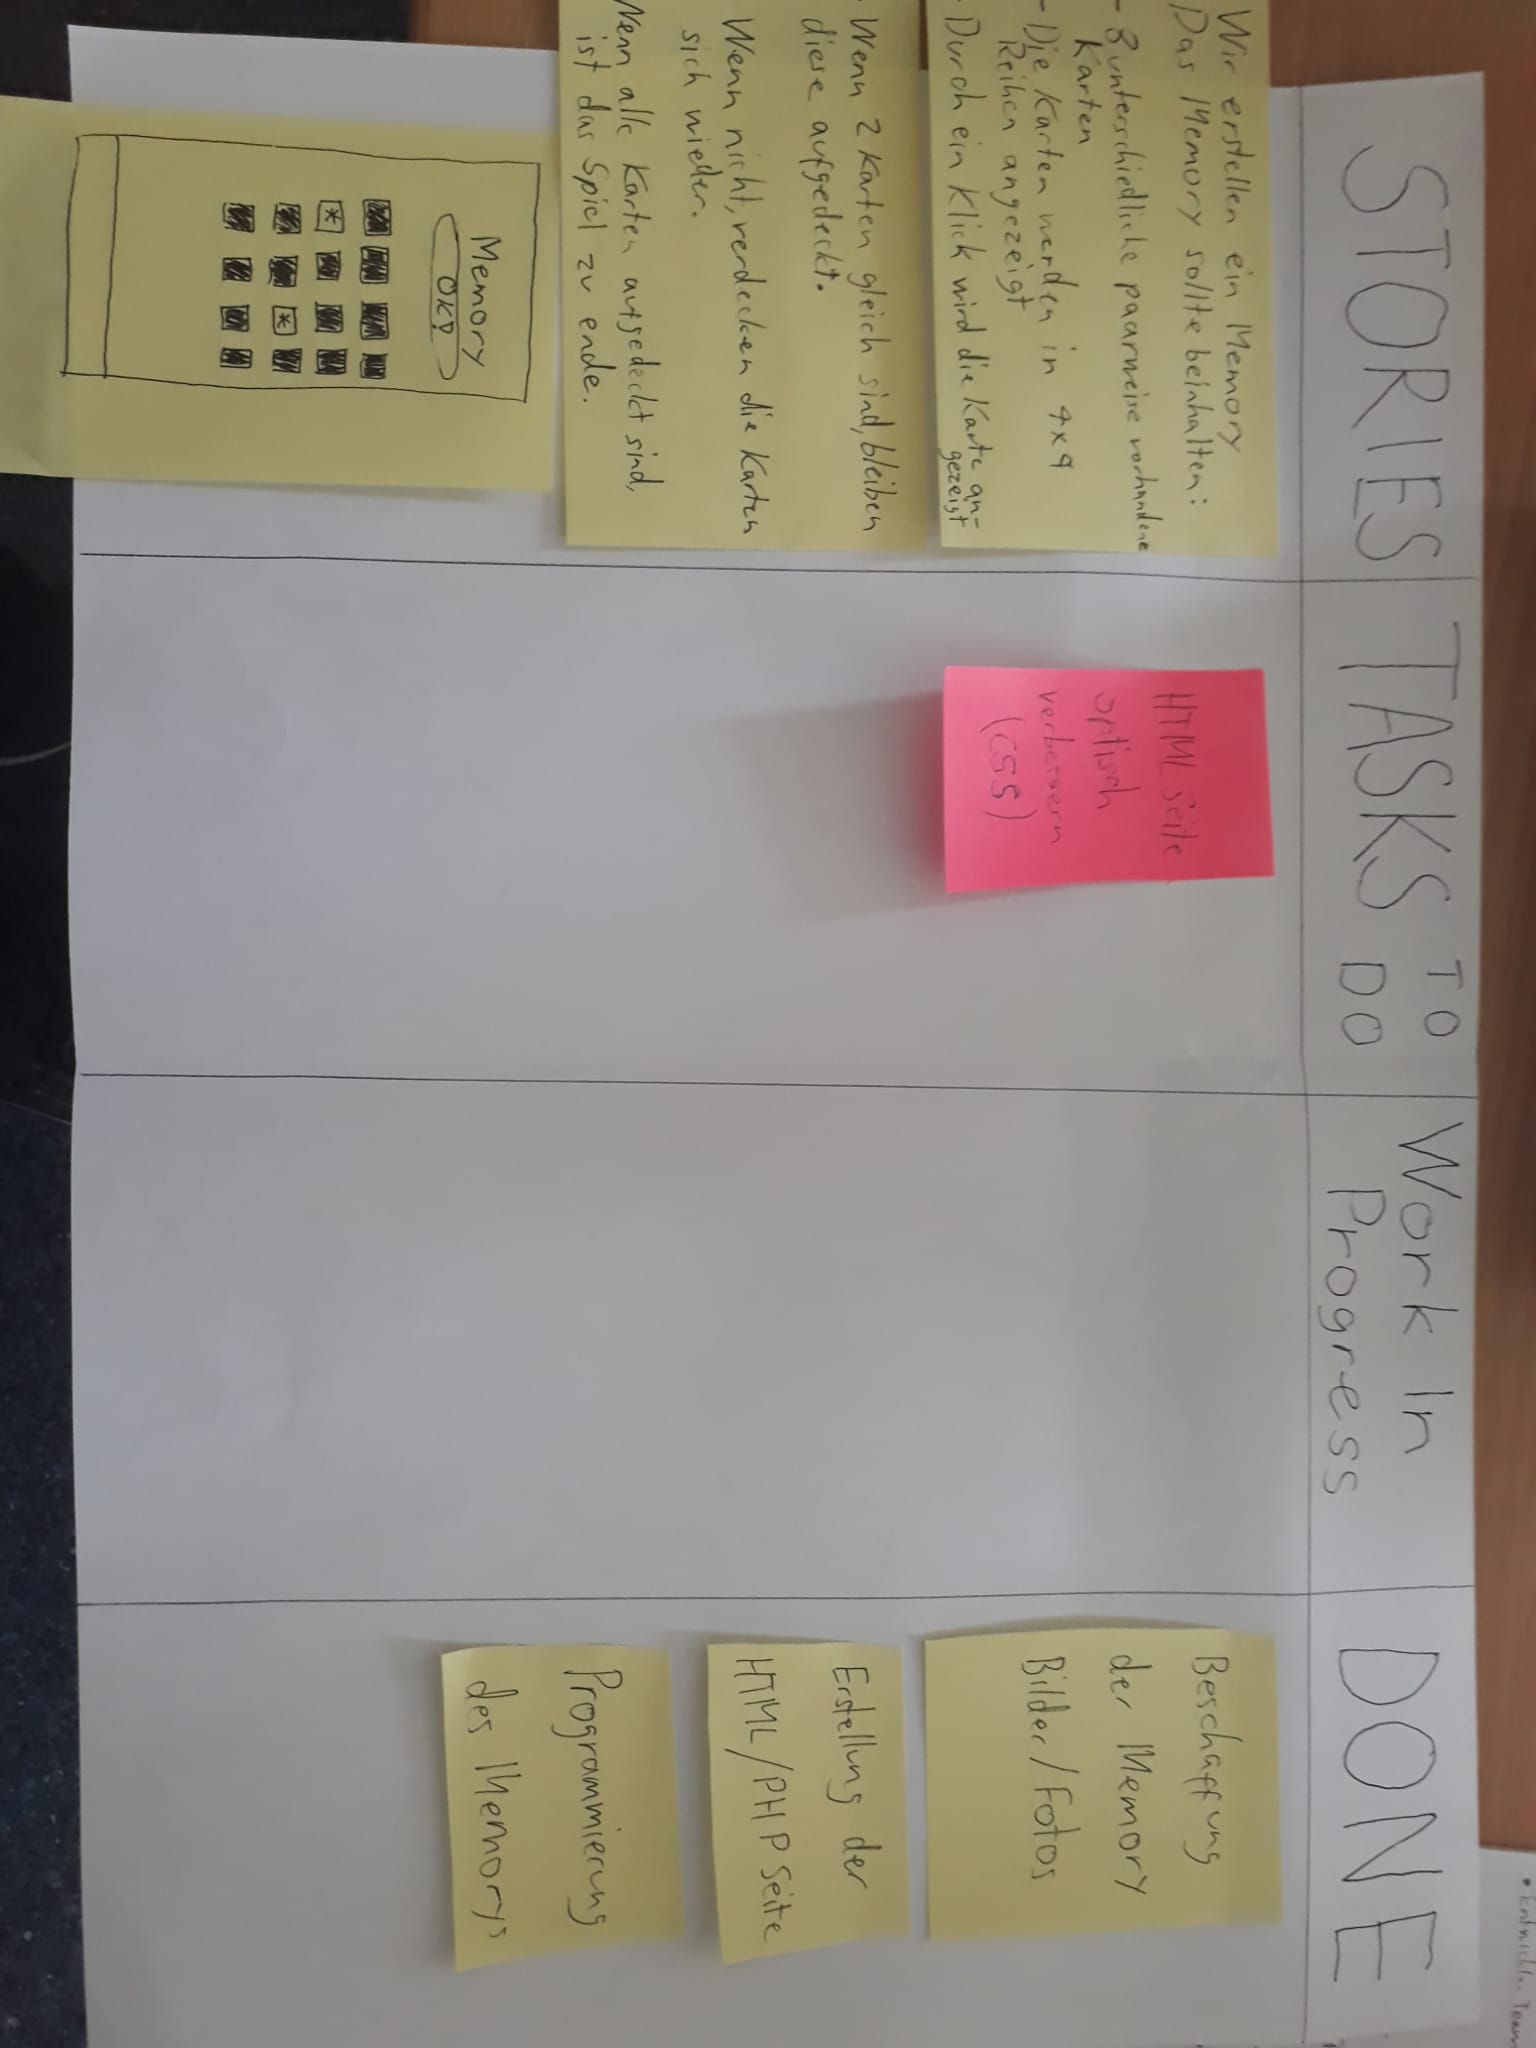 • Entwickler Team
STORIES
TASKS TO DO
Work In
Progress
DONE
Wir erstellen ein Memory
Das Memory sollte beinhalten:
- 8 unterschiedliche paarweise vorhandene
Karten
- Die Karten werden in 4x4
Reihen angezeigt
- Durch ein Klick wird die Karte an-
gezeigt
- Wenn 2 Karten gleich sind, bleiben
diese aufgedeckt.
Wenn nicht, verdecken die Karten
sich wieder.
Wenn alle Karten aufgedeckt sind,
ist das Spiel zu ende.
Memory
OK!
HTML Seite
optisch
verbessern
(CSS)
Beschaffung
der Memory
Bilder/Fotos
Erstellung der
HTML/PHP Seite
Programmierung
des Memorys